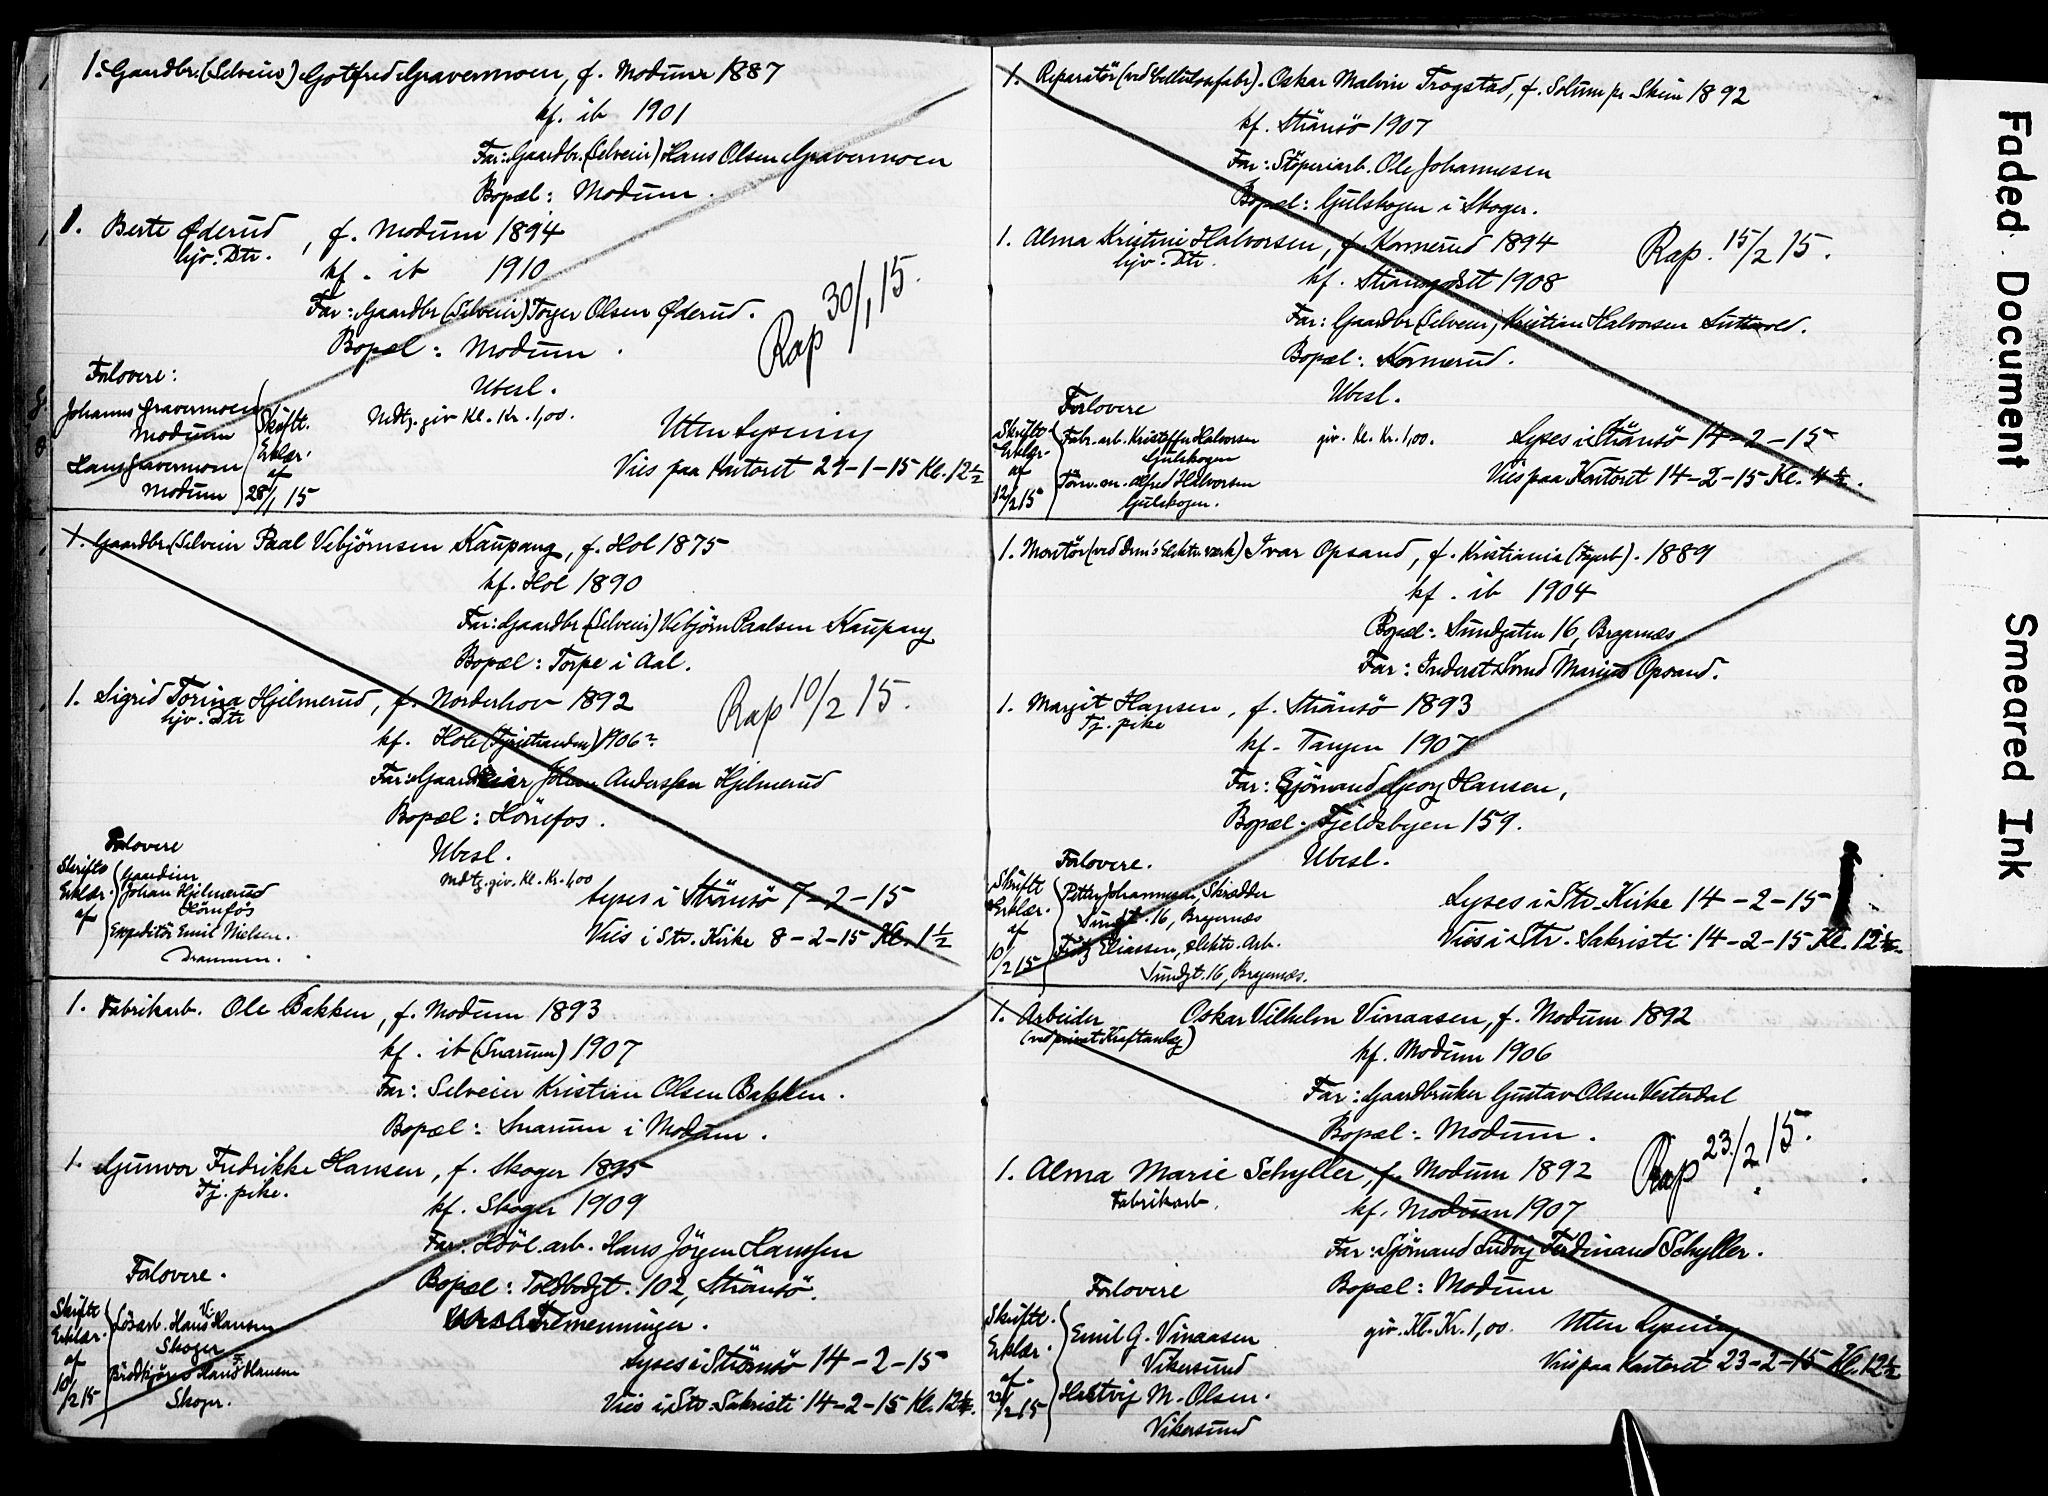 1. Gaardbr. (Selveier) Gotfred Gravermoen, f. Modum 1887
kf. ib 1901
Far: Gaardbr. (Selveier) Hans Olsen Gravermoen
Bopæl: Modum.
1. Berte Øderud, f. Modum 1894
hjv. Dtr.
kf. ib 1910
Far: Gaardbr (Selveier) Torger Olsen Øderud.
Bopæl: Modum.
Rap 30/1 15.
Forlovere:
Ubesl.
Johannes Gravermoen
Modum
Hans Gravermoen
Modum
Skriftl.
Erklær.
af
28/1 15
Mdtg. giv. Kl. Kr. 1,00.
Uten Lysning
Vies paa Kontoret 29-1-15 Kl. 12 1/2
1. Gaardbr. (Selveier Paal Vebjörnsen Kaupang, f. Hol 1875
kf. Hol 1890
Far: Gaardbr (Selveier) Vebjörn Paalsen Kaupang
Bopæl: Torpe i Aal.
1. Sigrid Torina Hjelmerud, f. Norderhov 1892
hjv. Dtr
Rap 10/2 15.
kf. Hole (Tyristranden) 1906
Far: Gaardeier Johan Anderssen Hjelmerud
Bopæl: Hönefos.
Forlovere
Ubesl.
Skriftl
Erklær.
af
Gaardeier
Johan Hjelmerud
Hönefos
Expeditör Emil Nielsen.
Drammen.
Mdtg. giv. Kl. Kr. 1,00
Lyses i Strömsö 7-2-15
Vies i Str. Kirke 8-2-15 Kl. 1 1/2
1. Fabrikarb. Ole Bakken, f. Modum 1893
kf. ib (Snarum) 1907
Far: Selveier Kristian Olsen Bakken.
Bopæl: Snarum i Modum.
1. Gunvor Fredrikke Hansen, f. Skoger 1895
Tj. pike.
kf. Skoger 1909
Far: Hövl. arb. Hans Jörgen Hanssen
Bopæl: Toldbodgt. 102, Strömsö.
Forlovere.
Tremenninger.
Skriftl
Erklær.
af
10/2 15
Lösarb. Hans Hansen
Skoger
Brödkjörer Hans Hansen
Skoger.
Lyses i Strömsö 14-2-15
Vies i Str. Sakristi 14-2-15 Kl.
1. Reparatör (ved Cellulosefabr). Oskar Malvin Trogstad, f. Solum pr. Skien 1892
kf. Strömsö 1907
Far: Stöperiarb. Ole Johannesen
Bopæl: Gulskogen i Skoger.
1. Alma Kristine Halvorsen, f. Konnerud 1894
hjv. Dtr.
Rap. 15/2 15.
kf. Strömsgodset 1908
Far: Gaardbr (Selveier) Kristian Halvorsen
Bopæl: Konnerud.
Ubesl.
Forlovere
Skriftl
Erklær.
af
12/2 15
Fabr. arb. Kristoffer Halvorsen
Gulskogen
Tömm. Alfred Halvorsen
Gulskogen.
giv. Kl. Kr. 1,00.
Lyses i Strömsö 14-2-15
Vies paa Kontoret 14-2-15 Kl.
1. Montör (ved Drm's Elektr. værk) Ivar Opsand, f. Kristiania (Fagerb). 1889
kf. ib 1904
Bopæl: Sundgaten 16, Bragernæs
Far: Marius Opsand.
1. Margit Hansen, f. Strömsö 1893
Tj. pike
kf. Tangen 1907
Far: Sjömand Georg Hansen,
Bopæl: Fjeldsbyen 159.
Forlovere.
Ubesl.
Skriftl
Erklær.
af
10/2 15
Petter Johannesen, Skrædder
Sundgt. 16, Bragernæs
Fritz Eliassen, elektr. Arb.
Sundgt. 16, Bragernæs.
Lyses i Str. Kirke 14-2-15
Vies i Str. Sakristi 14-2-15 Kl.
1. Arbeider Oskar Vilhelm Vinaasen, f. Modum 1892
(ved privat Kraftanlæg)
kf. Modum 1906
Far: Gaardbruker Gustav Olsen Vesterdal
Bopæl: Modum.
1. Alma Marie Schyller, f. Modum 1892
Fabrikarb.
Rap 23/2 15.
kf. Modum 1907
Far: Sjömand Ludvig Ferdinand Schyller.
Bopæl: Modum
Forlovere
Skriftl.
Erklær.
af
/2 15
Emil G. Vinaasen
Vikersund
M. Olsen.
Vikersund
giv. Kl. Kr. 1,00.
Uten Lysning
Vies paa Kontoret 23-2-15 Kl. 12 1/2
Faded Document
Smeared Ink